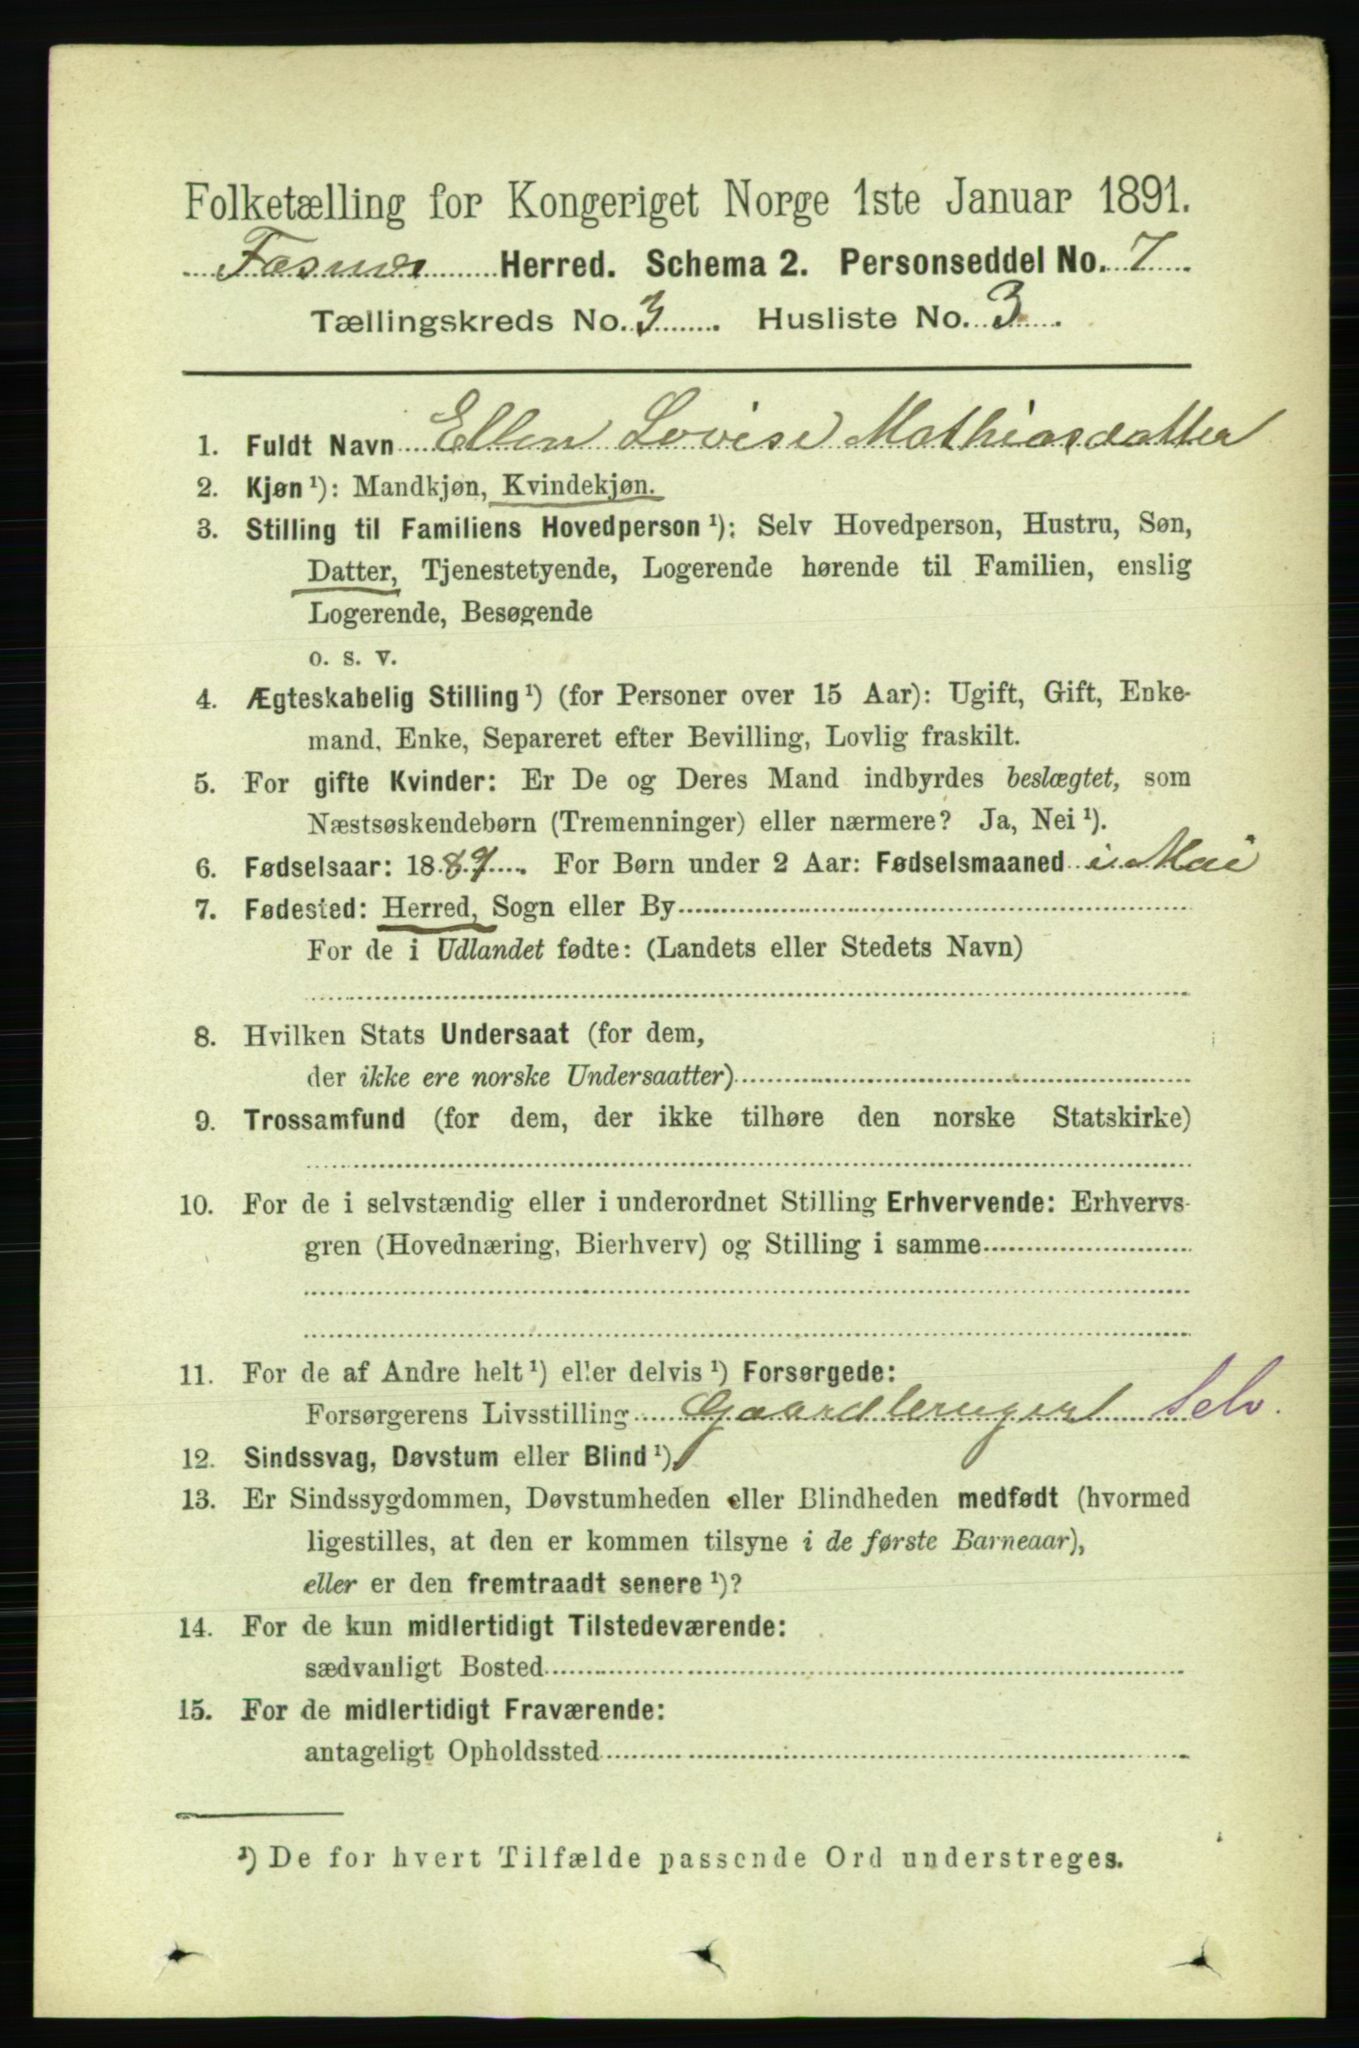 Folketælling for Kongeriget Norge 1ste Januar 1891.
Fosnes Herred. Schema 2. Personseddel No. 7
Tællingskreds No. 3. Husliste No. 3.
1. Fuldt Navn Ellen Lovise Mathiasdatter
2. Kjøn¹): Mandkjøn, Kvindekjøn.
3. Stilling til Familiens Hovedperson¹): Selv Hovedperson, Hustru, Søn,
Datter, Tjenestetyende, Logerende hørende til Familien, enslig
Logerende, Besøgende
o. s. v.
4. Ægteskabelig Stilling¹) (for Personer over 15 Aar): Ugift, Gift, Enke-
mand, Enke, Separeret efter Bevilling, Lovlig fraskilt.
5. For gifte Kvinder: Er De og Deres Mand indbyrdes beslægtet, som
Næstsøskendebørn (Tremenninger) eller nærmere? Ja, Nei¹).
6. Fødselsaar: 1889. For Børn under 2 Aar: Fødselsmaaned i Mai
7. Fødested: Herred, Sogn eller By
For de i Udlandet fødte: (Landets eller Stedets Navn)
8. Hvilken Stats Undersaat (for dem,
der ikke ere norske Undersaatter)
9. Trossamfund (for dem, der ikke tilhøre den norske Statskirke)
10. For de i selvstændig eller i underordnet Stilling Erhvervende: Erhvervs-
gren (Hovednæring, Bierhverv) og Stilling i samme
11. For de af Andre helt¹) eller delvis¹) Forsørgede:
Forsørgerens Livsstilling Gaardbruger Selv.
12. Sindssvag, Døvstum eller Blind¹).
13. Er Sindssygdommen, Døvstumheden eller Blindheden medfødt (hvormed
ligestilles, at den er kommen tilsyne i de første Barneaar),
eller er den fremtraadt senere¹)?
14. For de kun midlertidigt Tilstedeværende:
sædvanligt Bosted
15. For de midlertidigt Fraværende:
antageligt Opholdssted
¹) De for hvert Tilfælde passende Ord understreges.